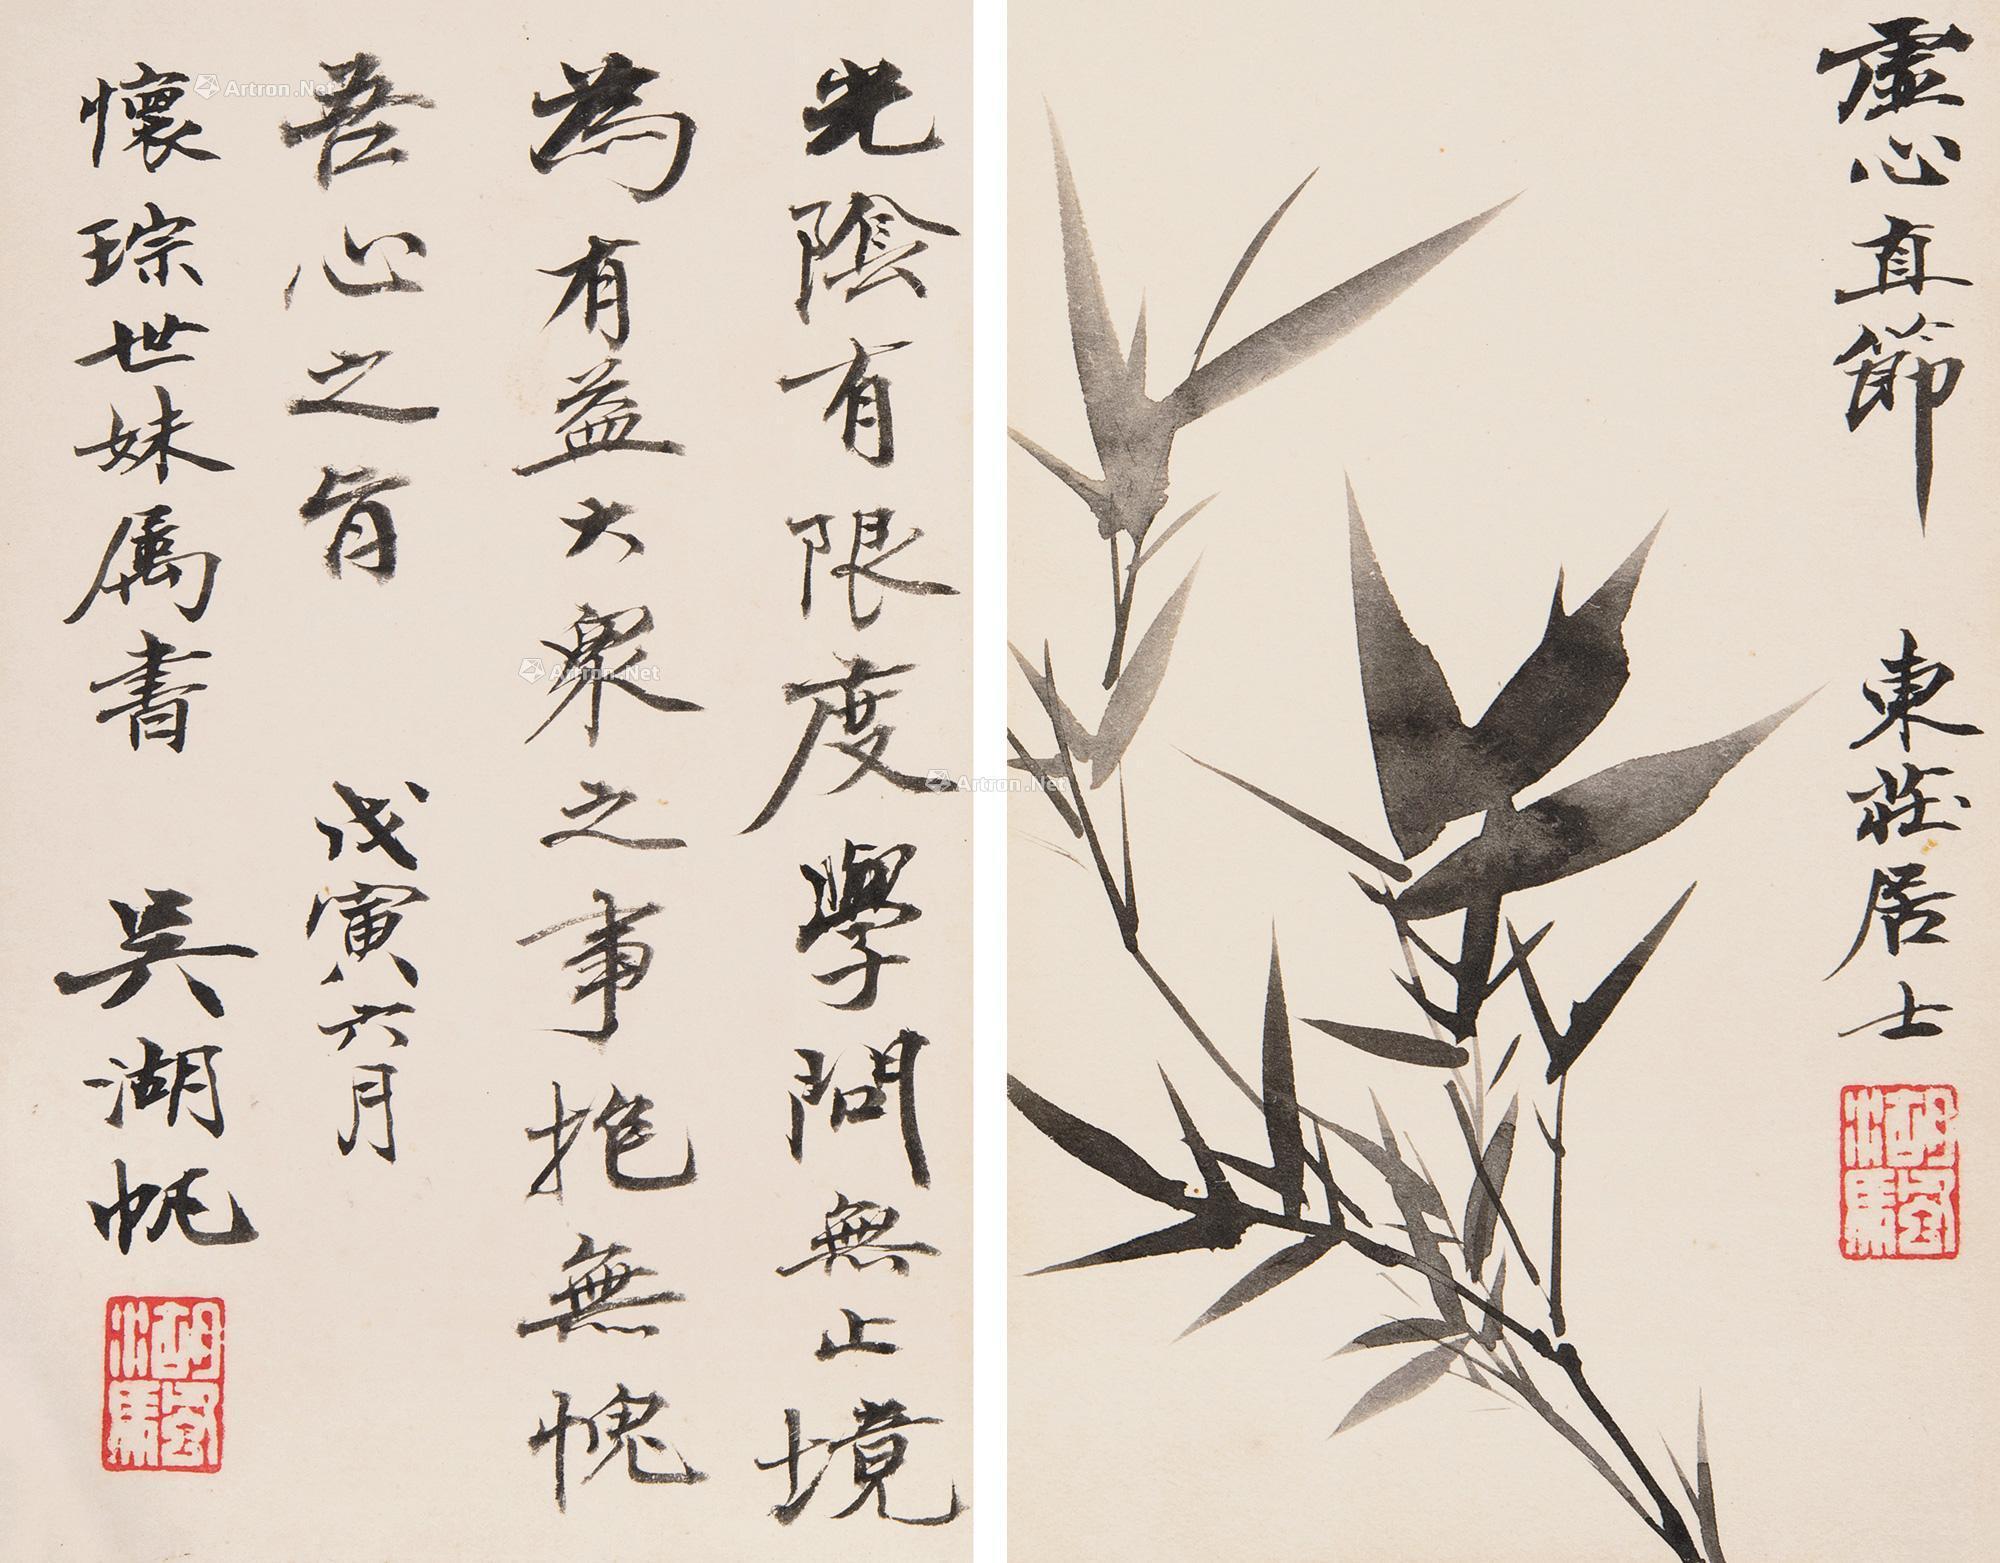 虛心直節 東莊居士
光陰有限度學問無止境
為有益大眾之事抱無愧
吾心之旨 戊寅六月
懷琮世妹屬書 吳湖帆
Artron.Net
Artron.Net
Artron.Net